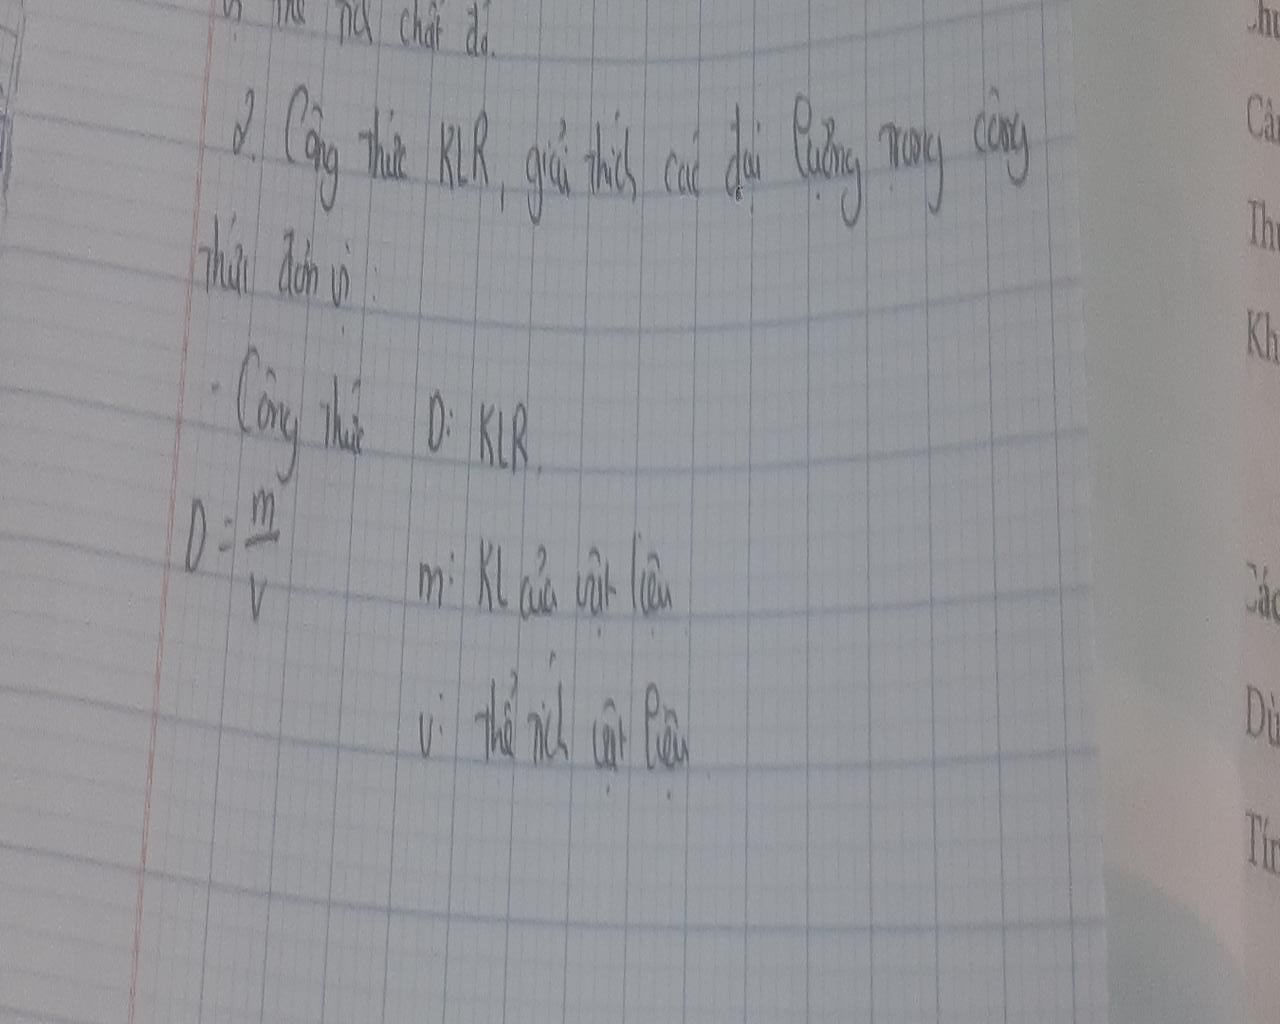 chất đó.
2. Công thức KLR, giải thích các đại lượng trong công
thức đơn vị:
- Công thức D: KLR.
D = m/V
m: KL của vật liệu
V: thể tích vật liệu
Câ
Th
Kh
Các
Dù
Tín